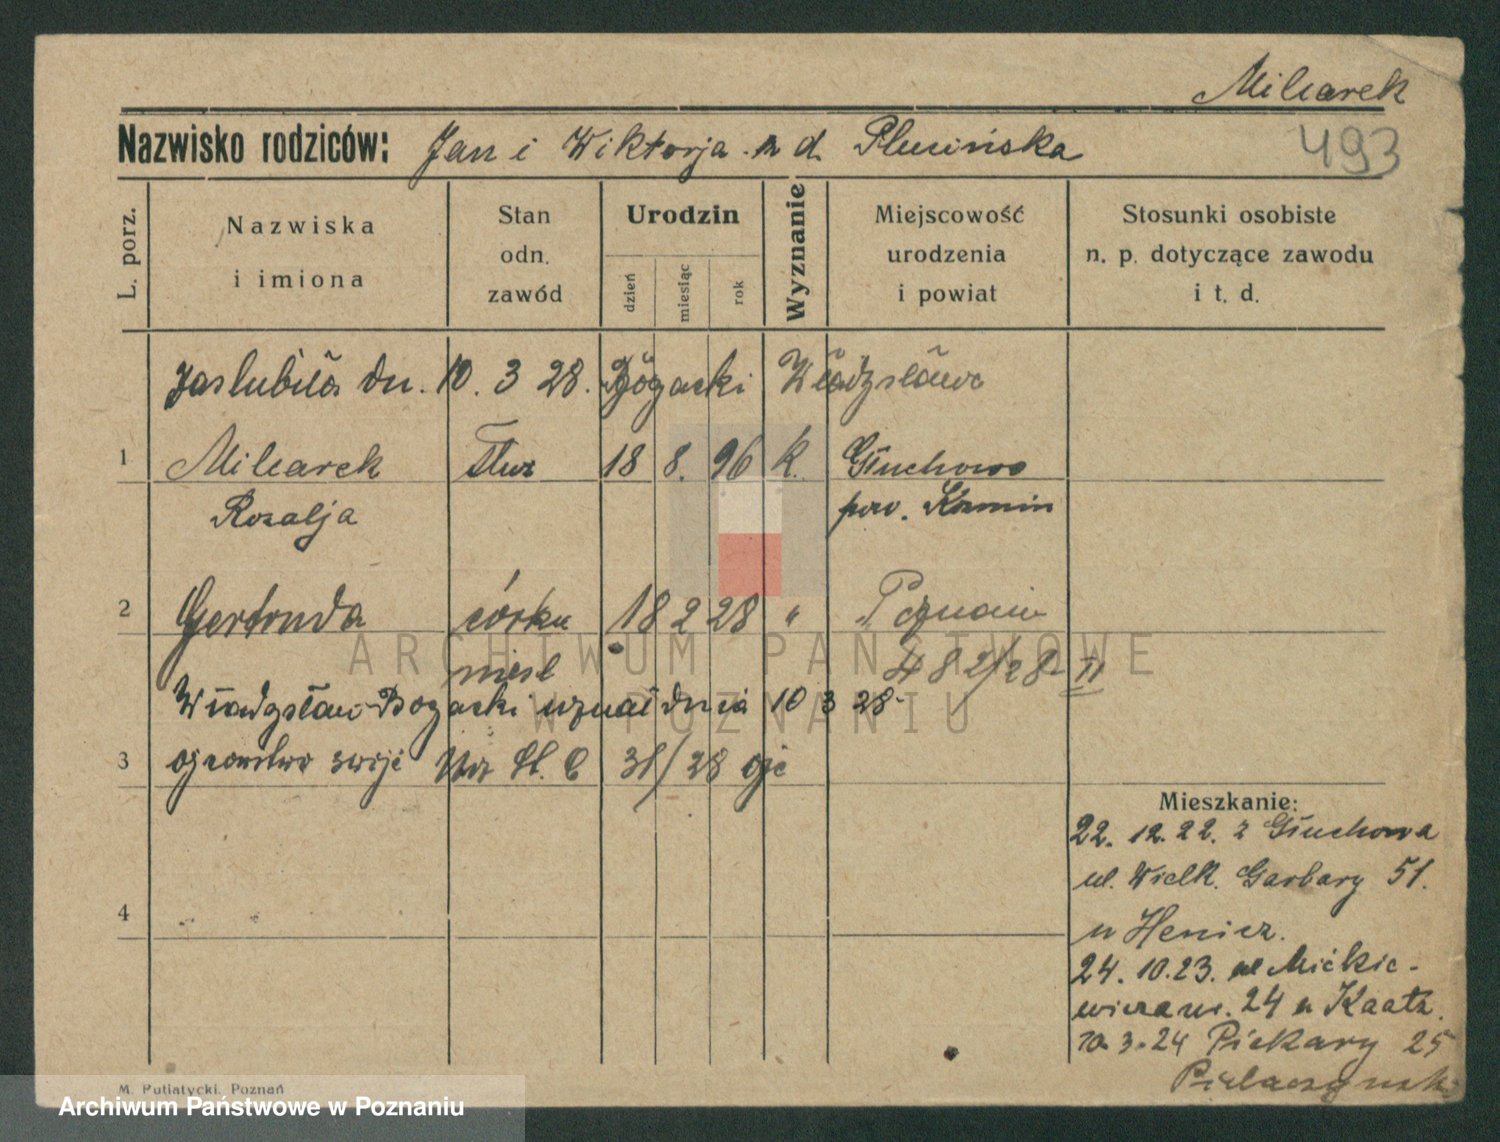 Milcarek
Nazwisko rodziców: Jan i Wiktorja z d. Plucińska
493
L. porz.
Nazwiska i imiona
Stan odn. zawód
Urodzin
dzień
miesiąc
rok
Wyznanie
Miejscowość urodzenia i powiat
Stosunki osobiste n. p. dotyczące zawodu i t. d.
zaślubiła dn. 10. 3 28. Bogacki Władysława
1 Milcarek 18 8. 96 k. Głuchowo
Rozalja pow. Koźmin
2 Gertruda córka 18 2 28 " Poznań
nieśl 482/28 II
Władysław Bogacki uznał dnia 10 3 28
3 ojcowstwo swoje Urz St. C 31/28
Mieszkanie:
22. 12. 22. z Głuchowa
ul. Wielk. Garbary 51.
4
u Henicz.
24. 10. 23. ul Mickie-
wicza nr. 24 u Kaatz.
10. 3. 24 Piekary 25
M. Putiatycki, Poznań
ARCHIWUM PAŃSTWOWE
W POZNANIU
Archiwum Państwowe w Poznaniu